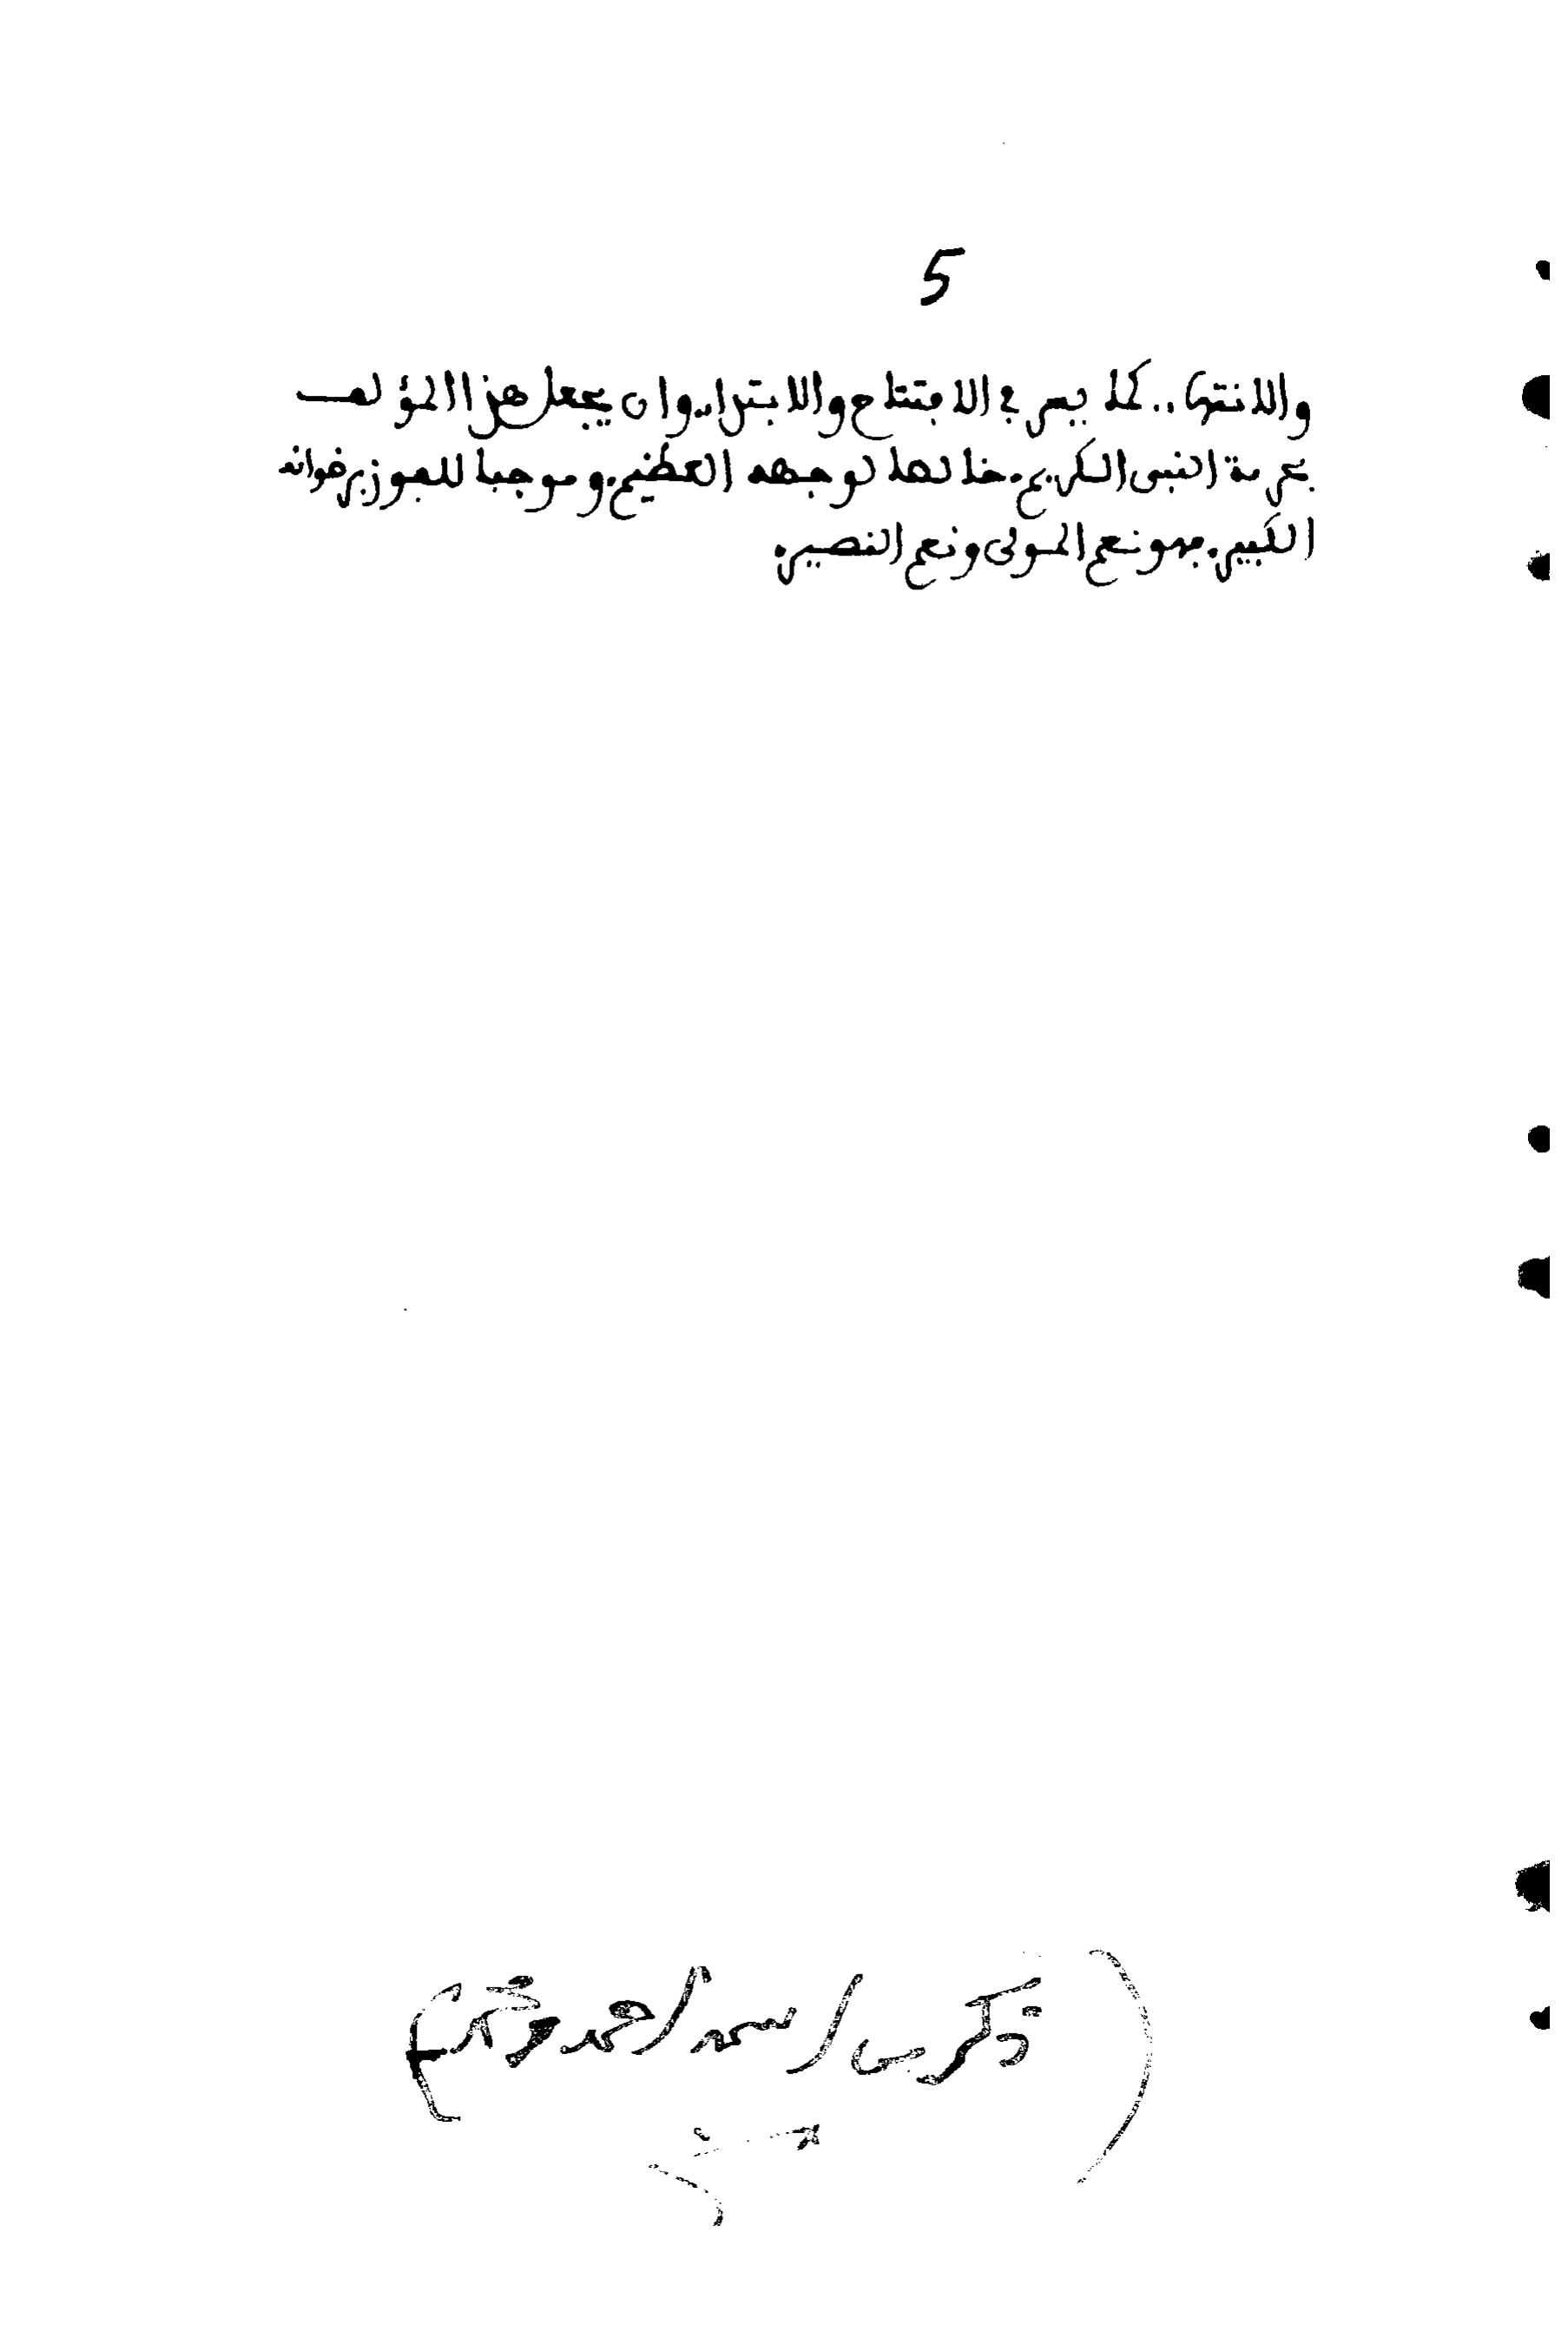 5
والانتهاء.. كما يسر في الافتتاح والابتداء.. وان يجعل هذا المؤلف
بحرمة النبي الكريم. خالصا لوجهه العظيم. وموجبا للفوز برضوانه
الكبير. فهو نعم المولى ونعم النصير.
احمد